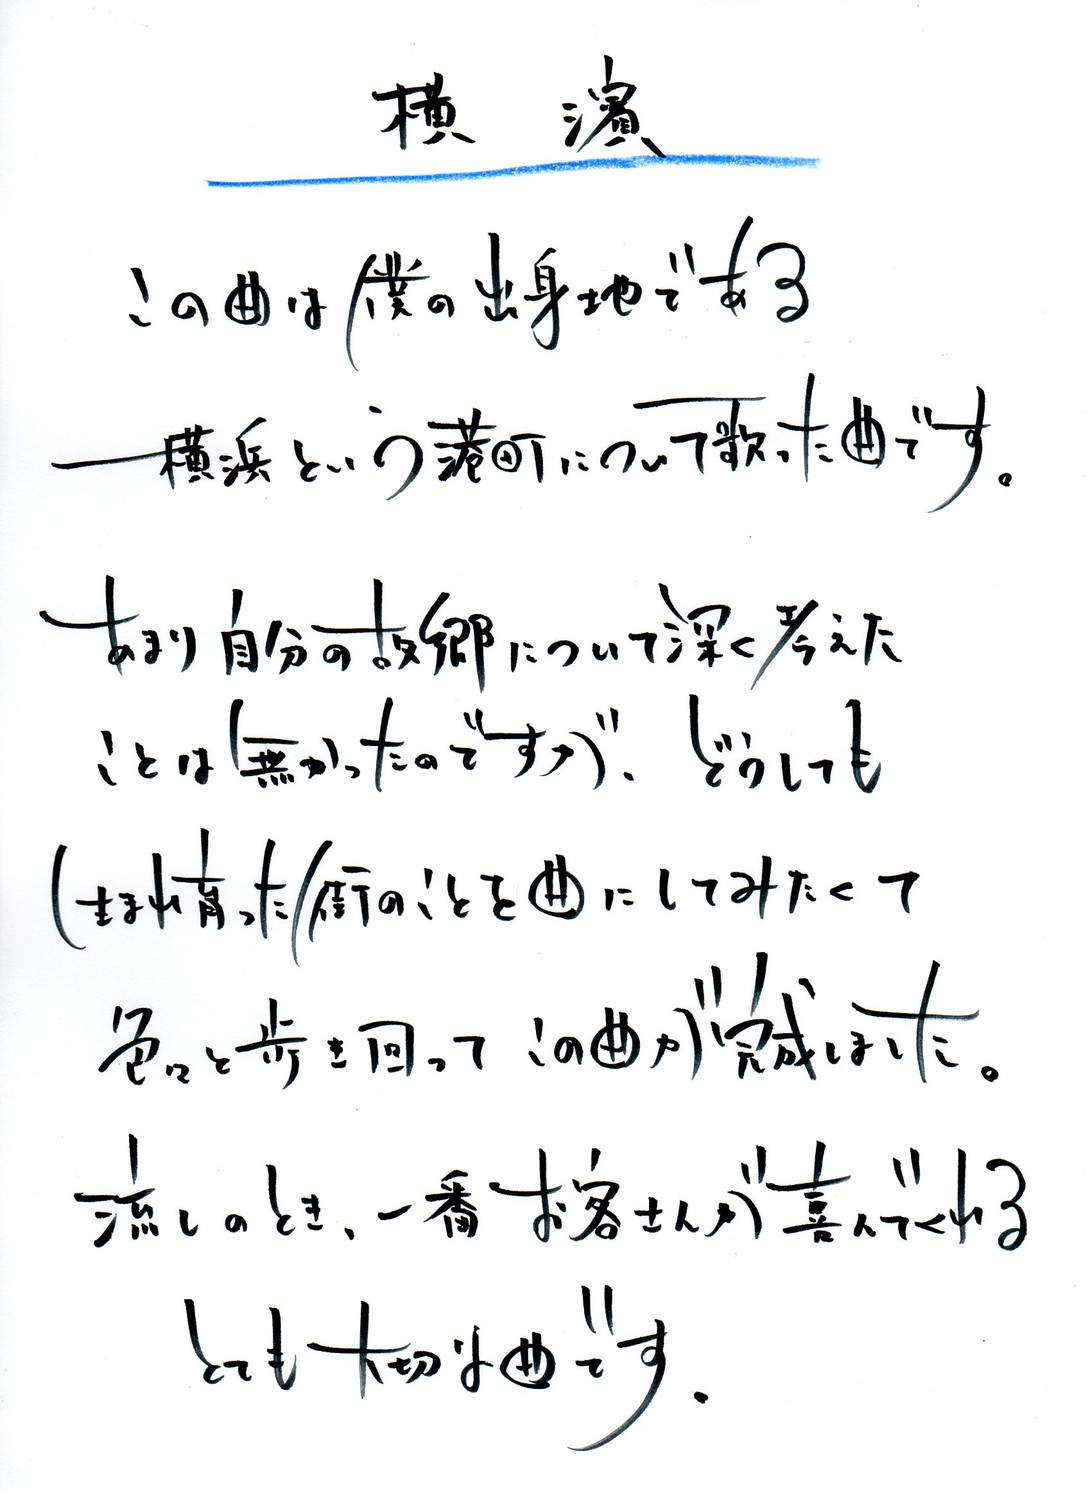 横濱
この曲は僕の出身地である
横浜という港町について歌った曲です。
あまり自分の故郷について深く考えた
ことは無かったのですが、どうしても
生まれ育った街のことを曲にしてみたくて
色々と歩き回ってこの曲が完成しました。
流しのとき、一番お客さんが喜んでくれる
とても大切な曲です。